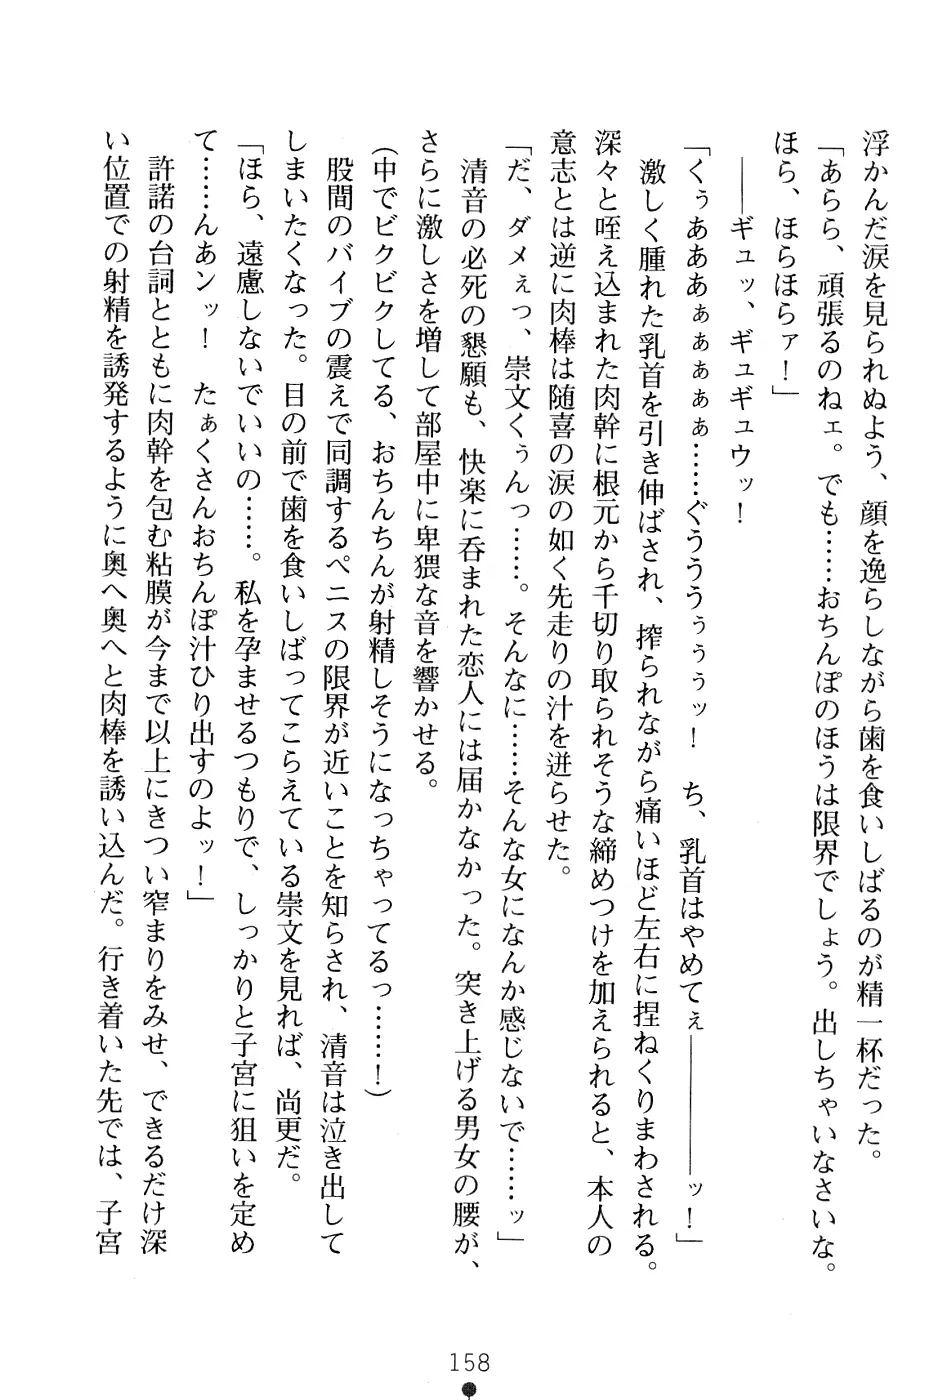 浮かんだ涙を見られぬよう、顔を逸らしながら歯を食いしばるのが精一杯だった。
「あらら、頑張るのねェ。でも……おちんぽのほうは限界でしょう。出しちゃいなさいな。
ほら、ほらほらァ！」
――ギュッ、ギュギュウッ！
「くぅあああぁぁぁぁぁ……ぐうううぅぅぅッ！　ち、乳首はやめてぇ――――――ッ！」
激しく腫れた乳首を引き伸ばされ、搾られながら痛いほど左右に捏ねくりまわされる。
深々と咥え込まれた肉幹に根元から千切り取られそうな締めつけを加えられると、本人の
意志とは逆に肉棒は随喜の涙の如く先走りの汁を迸らせた。
「だ、ダメぇっ、崇文くぅんっ……。そんなに……そんな女になんか感じないで……ッ」
清音の必死の懇願も、快楽に呑まれた恋人には届かなかった。突き上げる男女の腰が、
さらに激しさを増して部屋中に卑猥な音を響かせる。
（中でビクビクしてる、おちんちんが射精しそうになっちゃってるっ……！）
股間のバイブの震えで同調するペニスの限界が近いことを知らされ、清音は泣き出して
しまいたくなった。目の前で歯を食いしばってこらえている崇文を見れば、尚更だ。
「ほら、遠慮しないでいいの……。私を孕ませるつもりで、しっかりと子宮に狙いを定め
て……んあンッ！　たぁくさんおちんぽ汁ひり出すのよッ！」
許諾の台詞とともに肉幹を包む粘膜が今まで以上にきつい窄まりをみせ、できるだけ深
い位置での射精を誘発するように奥へ奥へと肉棒を誘い込んだ。行き着いた先では、子宮
158